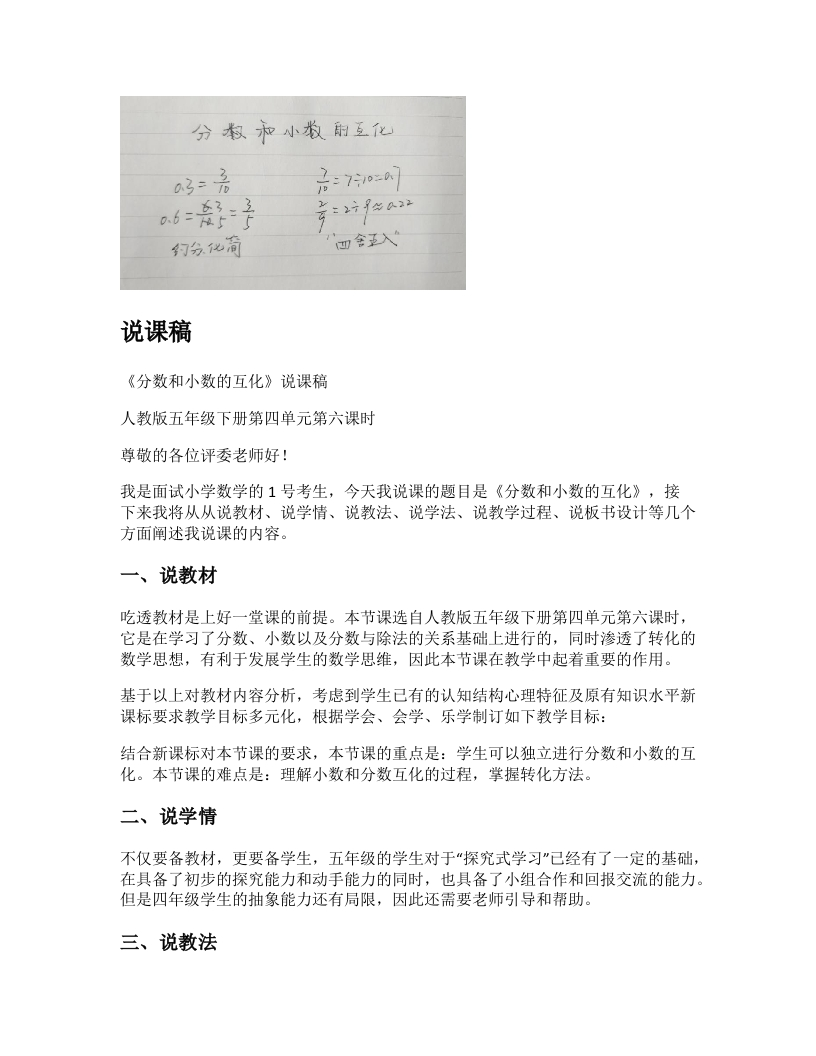 分数和小数的互化
0.3=3/10
7/10=7÷10=0.7
0.6=6/10=3/5
2/9=2÷9≈0.22
约分化简
"四舍五入"
说课稿
《分数和小数的互化》说课稿
人教版五年级下册第四单元第六课时
尊敬的各位评委老师好！
我是面试小学数学的 1 号考生，今天我说课的题目是《分数和小数的互化》，接
下来我将从从说教材、说学情、说教法、说学法、说教学过程、说板书设计等几个
方面阐述我说课的内容。
一、说教材
吃透教材是上好一堂课的前提。本节课选自人教版五年级下册第四单元第六课时，
它是在学习了分数、小数以及分数与除法的关系基础上进行的，同时渗透了转化的
数学思想，有利于发展学生的数学思维，因此本节课在教学中起着重要的作用。
基于以上对教材内容分析，考虑到学生已有的认知结构心理特征及原有知识水平新
课标要求教学目标多元化，根据学会、会学、乐学制订如下教学目标：
结合新课标对本节课的要求，本节课的重点是：学生可以独立进行分数和小数的互
化。本节课的难点是：理解小数和分数互化的过程，掌握转化方法。
二、说学情
不仅要备教材，更要备学生，五年级的学生对于“探究式学习”已经有了一定的基础，
在具备了初步的探究能力和动手能力的同时，也具备了小组合作和回报交流的能力。
但是四年级学生的抽象能力还有局限，因此还需要老师引导和帮助。
三、说教法